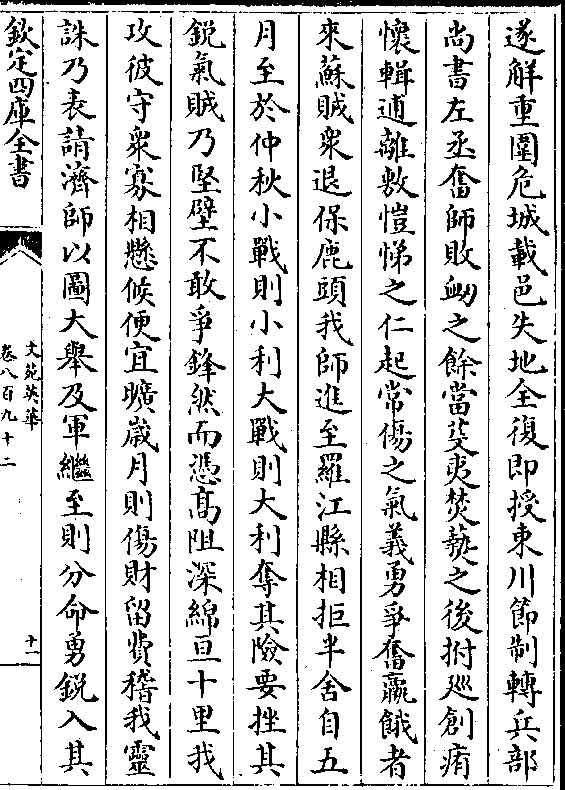 遂解重圍危城載邑失地全復即授東川節制轉兵部
尚書左丞奮師敗衂之餘當芟夷焚爇之後拊廵創痏
懷輯逋離敷愷悌之仁起常傷之氣義勇爭奮羸餓者
來蘇賊衆退保鹿頭我師進至羅江縣相拒半舍自五
月至於仲秋小戰則小利大戰則大利奪其險要挫其
鋭氣賊乃堅壁不敢爭鋒然而憑髙阻深綿亘十里我
攻彼守衆寡相懸候便宜曠歳月則傷財留費稽我靈
誅乃表請濟師以圖大舉及軍繼至則分命勇鋭入其
欽定四庫全書
文苑英華
卷八百九十二
十一